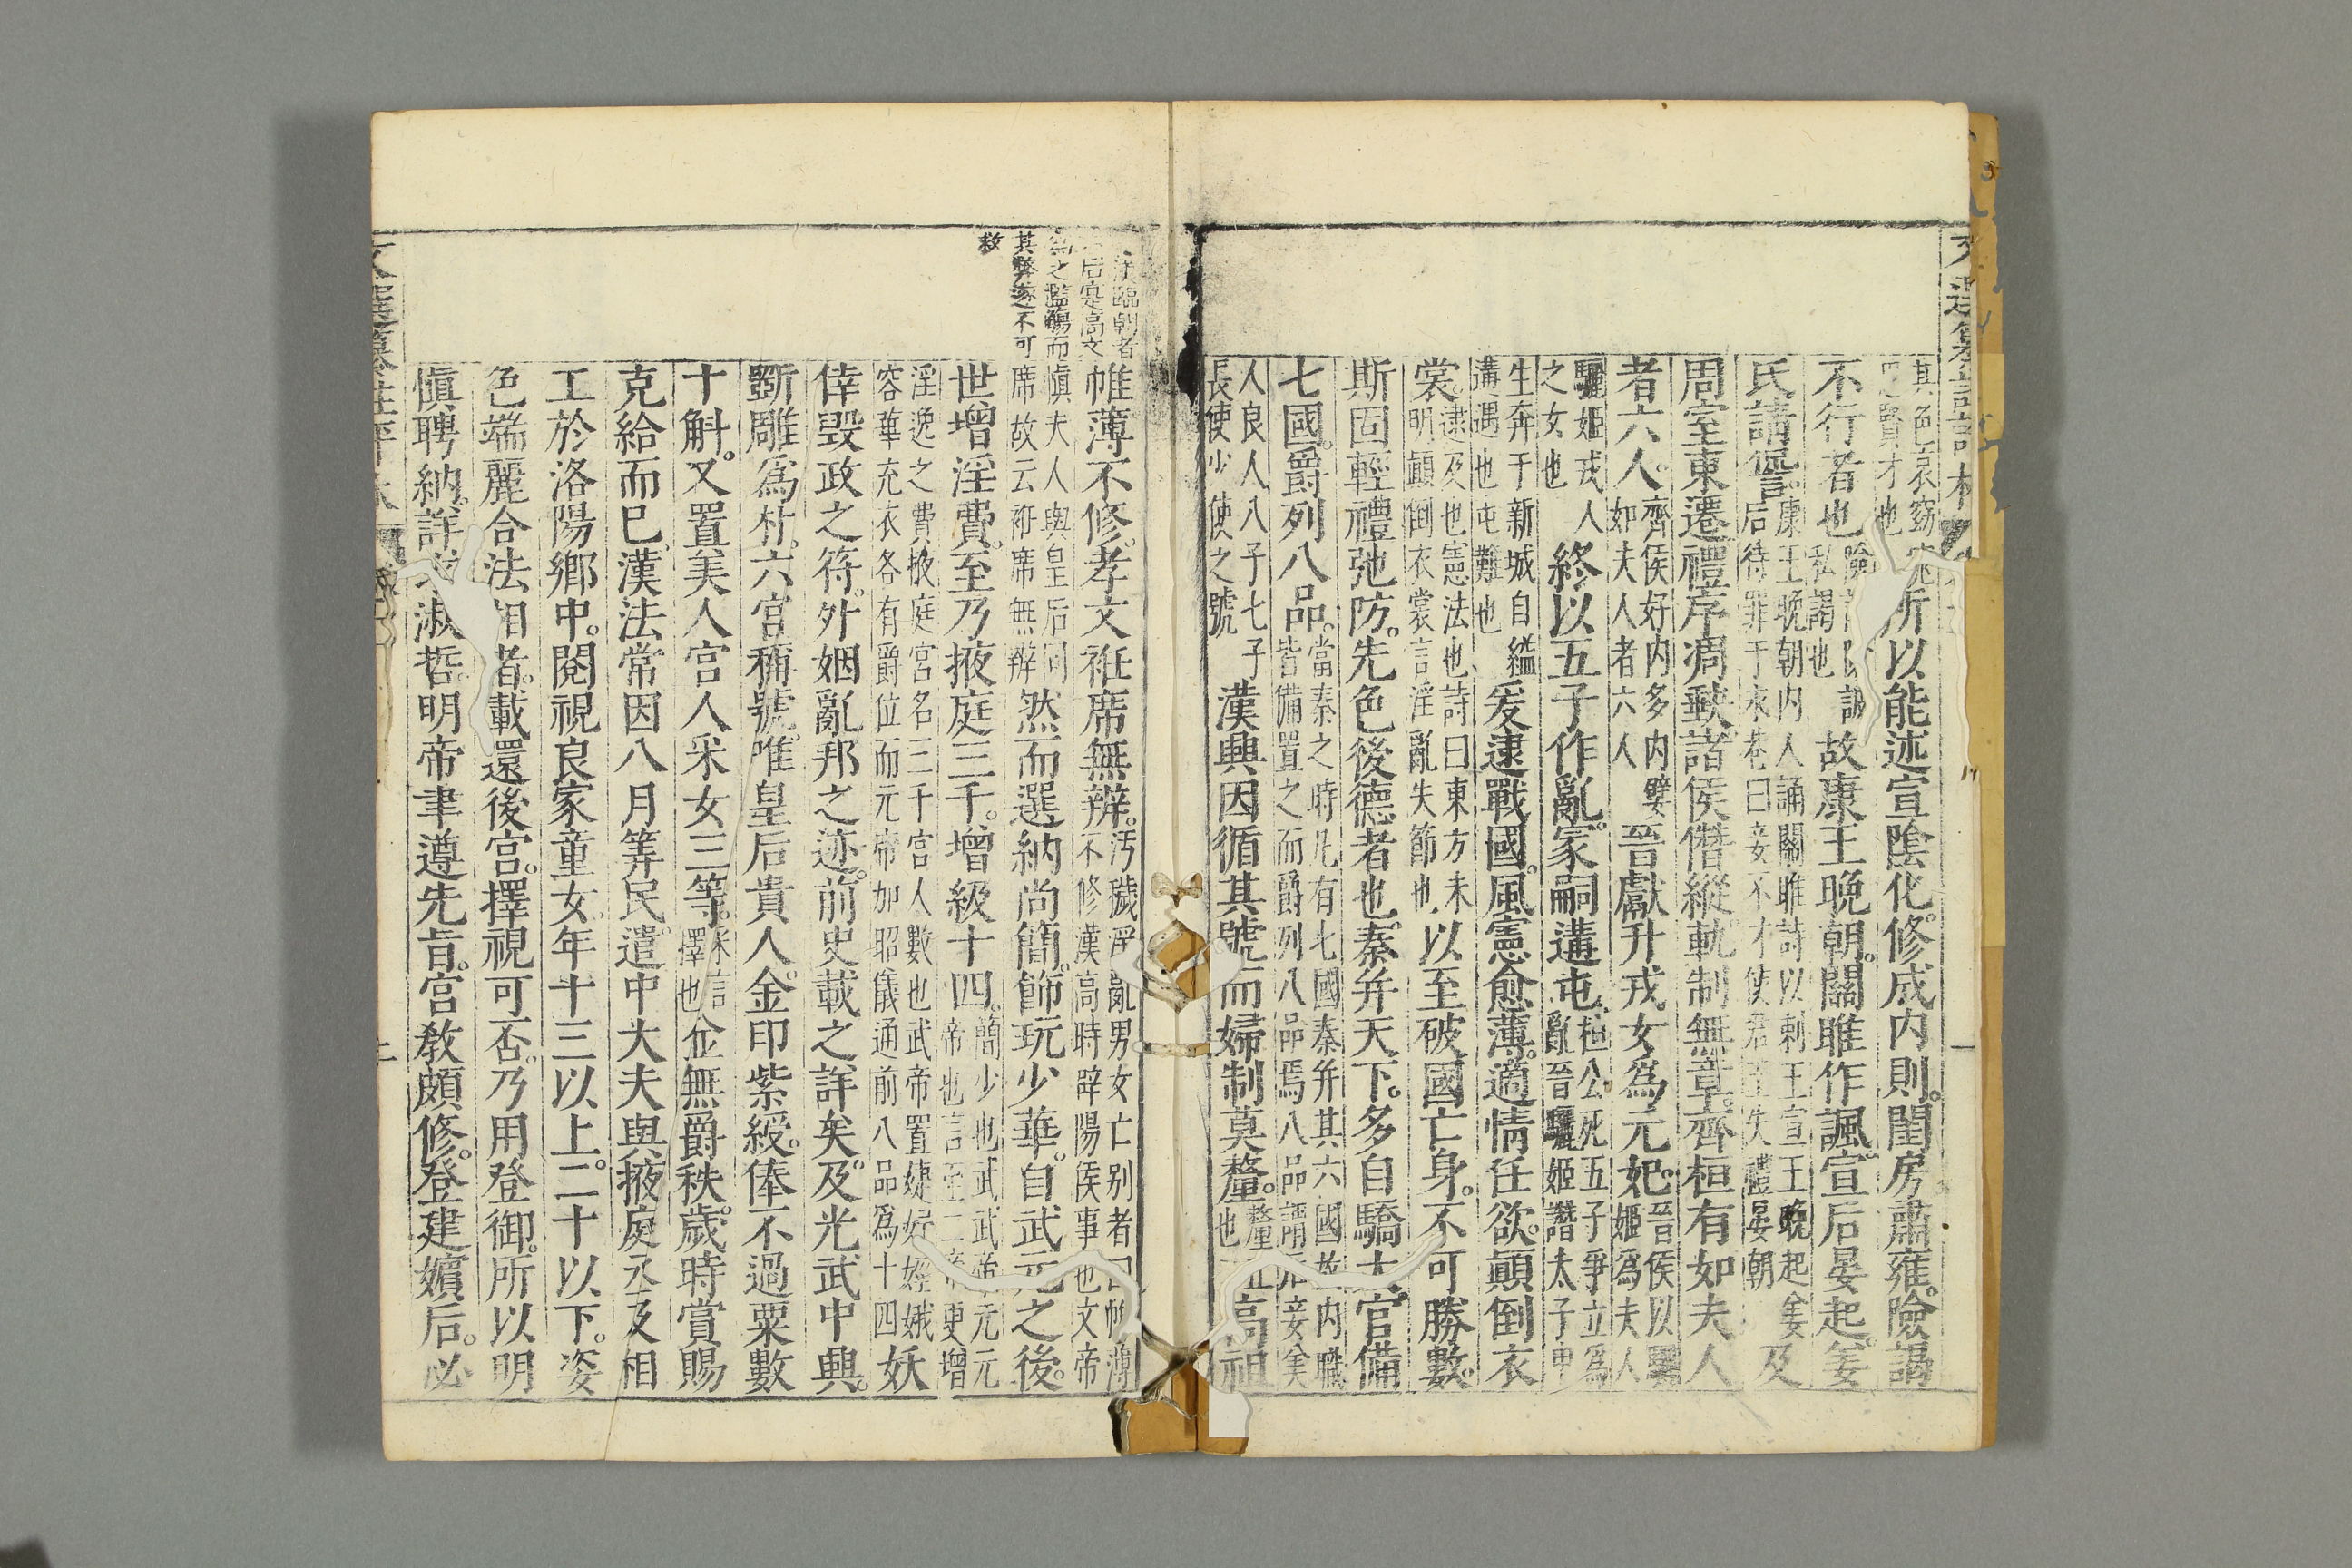 其色哀窈
賢才也
所以能述宣陰化。修成内則。閨房肅雍。險謁
不行者也
私謁也
故康王晚朝。關雎作諷。宣后晏起。姜
氏請愆。
康王晚朝内人誦關雎詩以刺王宣王晚起姜
后待罪于永巷曰妾不才使君王失禮晏朝
及
周室東遷。禮序凋缺。諸侯僭縱。軌制無章。齊桓有如夫人
者六人。
齊侯好内多内嬖
如夫人者六人
晉獻升戎女爲元妃。
晉侯以驪
姬爲夫人
驪姬戎人
之女也
終以五子作亂。家嗣遘屯。
桓公死五子爭立爲
亂晉驪姬譖太子申
生奔于新城自縊
遘遇也屯難也
爰逮戰國。風憲愈薄。適情任欲。顛倒衣
裳。
逮及也憲法也詩曰東方未
明顛倒衣裳言淫亂失節也
以至破國亡身。不可勝數。
斯固輕禮弛防。先色後德者也。秦并天下。多自驕大。官備
七國。爵列八品。
當秦之時凡有七國秦并其六國故内職
皆備置之而爵列八品焉八品謂后妾美
人良人八子七子
長使少使之號
漢興因循其號而婦制莫釐。
釐
也
高祖
帷薄不修。孝文袵席無辨。
汚穢淫亂男女亡别者曰帷薄
不修漢高時辟陽侯事也文帝
愼夫人與皇后同
席故云袵席無辨
然而選納尚簡。飾玩少華。自武元之後。
世增淫費。至乃掖庭三千。增級十四。
簡少也武武帝元元
帝也言至二帝更增
淫逸之費掖庭宮名三千宮人數也武帝置婕妤娙娥
容華充衣各有爵位而元帝加昭儀通前八品爲十四
妖
倖毁政之符。外姻亂邦之迹。前史載之詳矣。及光武中興。
斲雕爲朴。六宮稱號。唯皇后貴人。金印紫綬。俸不過粟數
十斛。又置美人宮人采女三等。
采言
擇也
並無爵秩。歲時賞賜
克給而已。漢法常因八月筭民。遣中大夫與掖庭丞及相
工於洛陽鄉中。閱視良家童女。年十三以上。二十以下。姿
色端麗合法相者。載還後宮。擇視可否。乃用登御。所以明
愼聘納。詳求淑哲。明帝聿遵先旨。宮教頗修。登建嬪后。必
臨朝者
后寔高文
爲之濫觴而
其弊遂不可
救